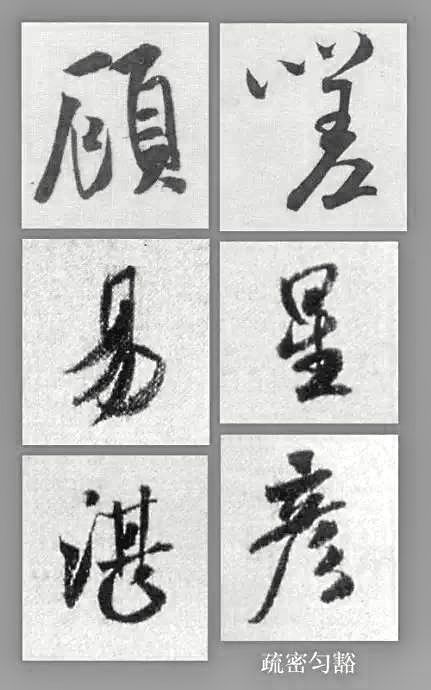 顾 嗟
易 星
湛 彦
疏密匀豁